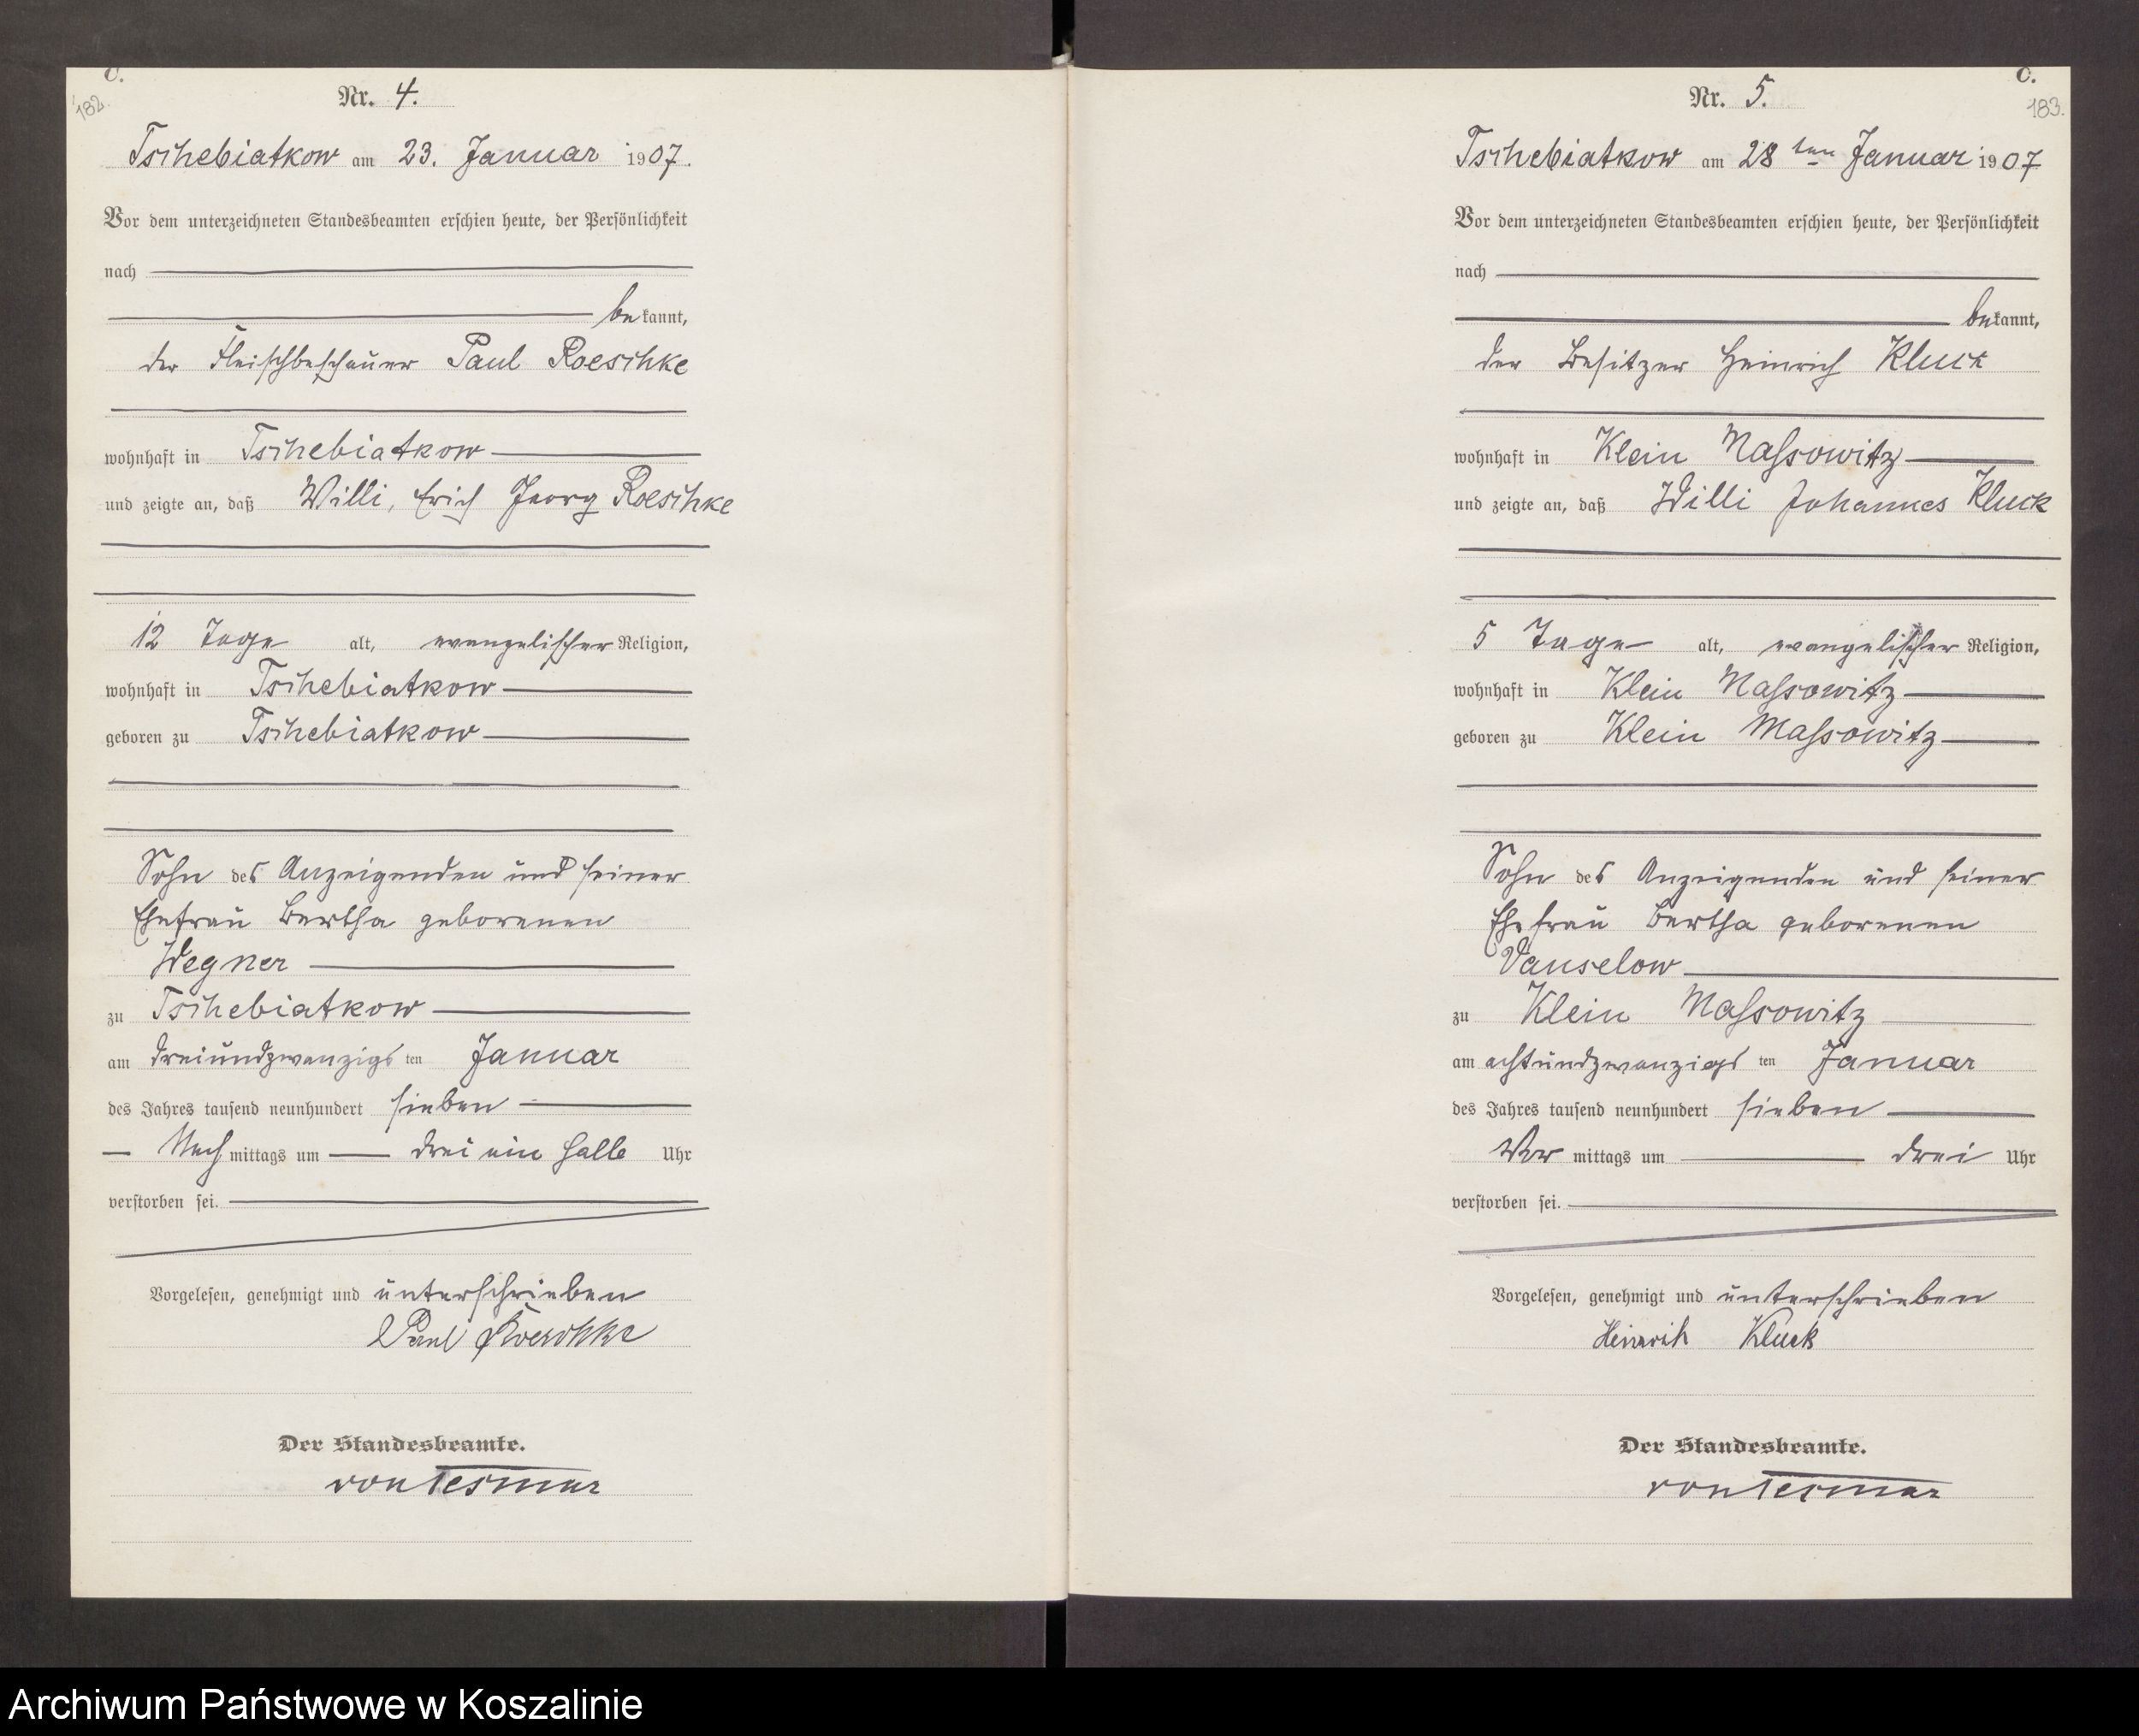 C.
182
Nr. 4.
Tschebiatkow am 23. Januar 1907.
Vor dem unterzeichneten Standesbeamten erschien heute, der Persönlichkeit
nach
bekannt,
der Fleischbeschauer Paul Roeschke
wohnhaft in Tschebiatkow
und zeigte an, daß Willi, Erich Georg Roeschke
12 Tage alt, evangelischer Religion,
wohnhaft in Tschebiatkow
geboren zu Tschebiatkow
Sohn des Anzeigenden und seiner
Ehefrau Bertha geborenen
Wegner
zu Tschebiatkow
am dreiundzwanzigsten Januar
des Jahres tausend neunhundert sieben
Nachmittags um drei ein halb Uhr
verstorben sei.
Vorgelesen, genehmigt und unterschrieben
Paul Roeschke
Der Standesbeamte.
von Tesmar
C.
183.
Nr. 5.
Tschebiatkow am 28ten Januar 1907
Vor dem unterzeichneten Standesbeamten erschien heute, der Persönlichkeit
nach
bekannt,
der Besitzer Heinrich Kluck
wohnhaft in Klein Massowitz
und zeigte an, daß Willi Johannes Kluck
5 Tage alt, evangelischer Religion,
wohnhaft in Klein Massowitz
geboren zu Klein Massowitz
Sohn des Anzeigenden und seiner
Ehefrau Bertha geborenen
Vanselow
zu Klein Massowitz
am achtundzwanzigsten Januar
des Jahres tausend neunhundert sieben
Vormittags um drei Uhr
verstorben sei.
Vorgelesen, genehmigt und unterschrieben
Heinrih Kluck
Der Standesbeamte.
von Tesmar
Archiwum Państwowe w Koszalinie